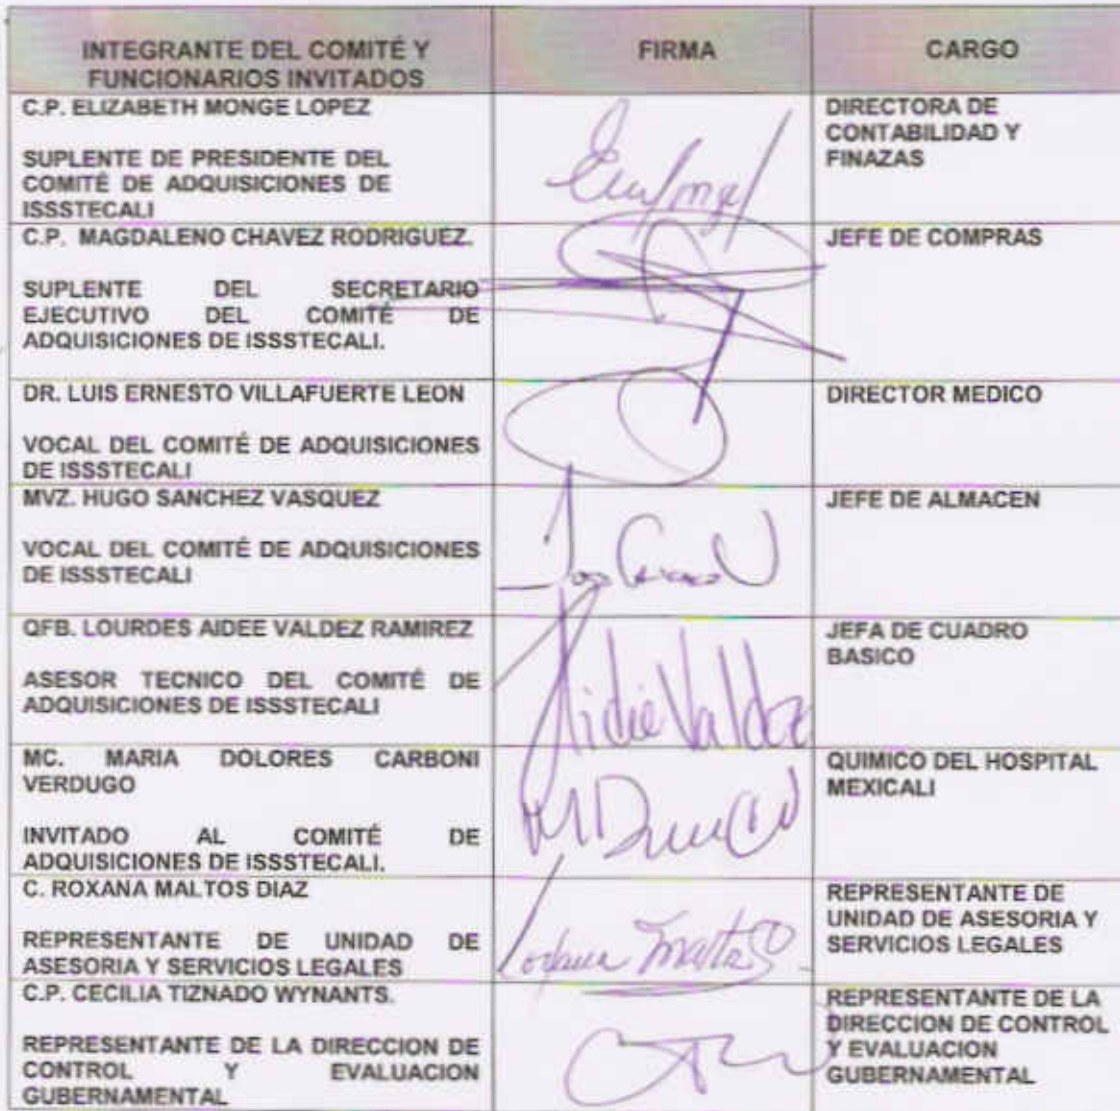 INTEGRANTE DEL COMITÉ Y
FUNCIONARIOS INVITADOS
FIRMA
CARGO
C.P. ELIZABETH MONGE LOPEZ
SUPLENTE DE PRESIDENTE DEL
COMITÉ DE ADQUISICIONES DE
ISSSTECALI
DIRECTORA DE
CONTABILIDAD Y
FINAZAS
C.P. MAGDALENO CHAVEZ RODRIGUEZ.
SUPLENTE DEL SECRETARIO
EJECUTIVO DEL COMITÉ DE
ADQUISICIONES DE ISSSTECALI.
JEFE DE COMPRAS
DR. LUIS ERNESTO VILLAFUERTE LEON
VOCAL DEL COMITÉ DE ADQUISICIONES
DE ISSSTECALI
DIRECTOR MEDICO
MVZ. HUGO SANCHEZ VASQUEZ
VOCAL DEL COMITÉ DE ADQUISICIONES
DE ISSSTECALI
JEFE DE ALMACEN
QFB. LOURDES AIDEE VALDEZ RAMIREZ
ASESOR TECNICO DEL COMITÉ DE
ADQUISICIONES DE ISSSTECALI
Aidie Valdez
JEFA DE CUADRO
BASICO
MC. MARIA DOLORES CARBONI
VERDUGO
INVITADO AL COMITÉ DE
ADQUISICIONES DE ISSSTECALI.
QUIMICO DEL HOSPITAL
MEXICALI
C. ROXANA MALTOS DIAZ
REPRESENTANTE DE UNIDAD DE
ASESORIA Y SERVICIOS LEGALES
REPRESENTANTE DE
UNIDAD DE ASESORIA Y
SERVICIOS LEGALES
C.P. CECILIA TIZNADO WYNANTS.
REPRESENTANTE DE LA DIRECCION DE
CONTROL Y EVALUACION
GUBERNAMENTAL
REPRESENTANTE DE LA
DIRECCION DE CONTROL
Y EVALUACION
GUBERNAMENTAL